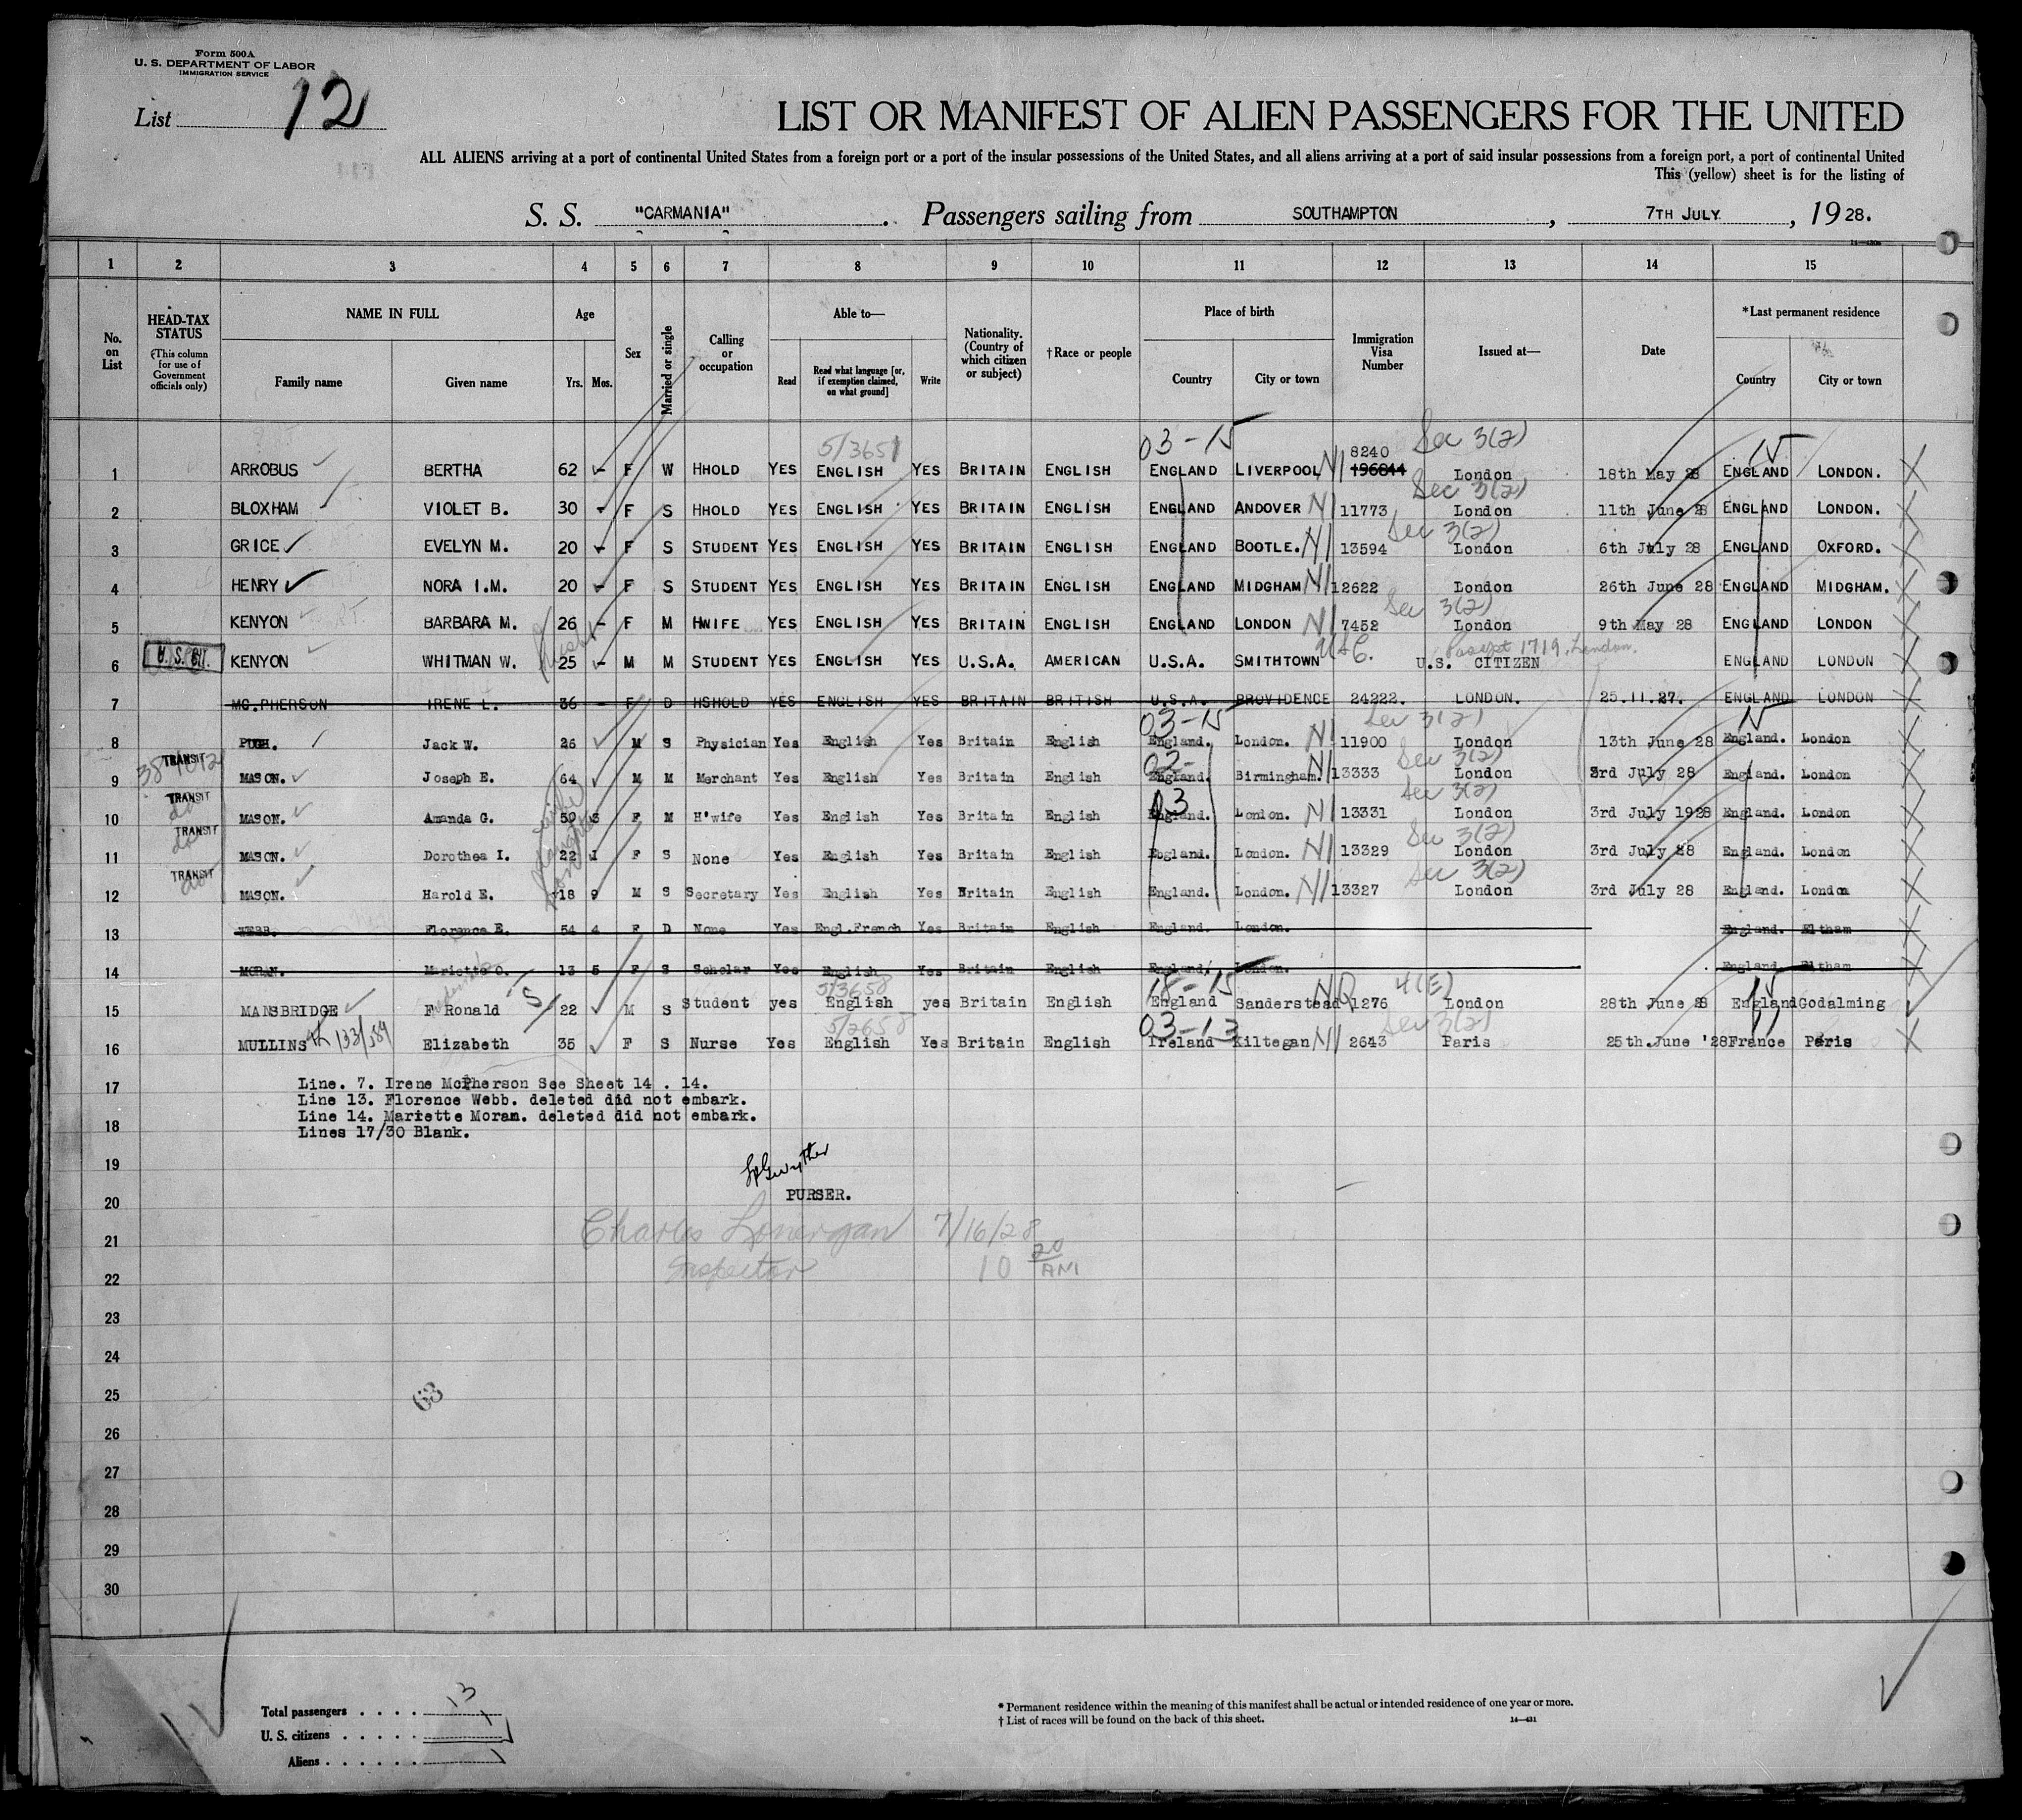 Form 500A
U. S. DEPARTMENT OF LABOR
IMMIGRATION SERVICE
List 12
LIST OR MANIFEST OF ALIEN PASSENGERS FOR THE UNITED
ALL ALIENS arriving at a port of continental United States from a foreign port or a port of the insular possessions of the United States, and all aliens arriving at a port of said insular possessions from a foreign port, a port of continental United
This (yellow) sheet is for the listing of
S. S. "CARMANIA". Passengers sailing from SOUTHAMPTON, 7TH JULY, 19 28.
1 2 3 4 5 6 7 8 9 10 11 12 13 14 15
No. on List
HEAD-TAX STATUS (This column for use of Government officials only)
NAME IN FULL
Family name Given name
Age
Yrs. Mos.
Sex
Married or single
Calling or occupation
Able to—
Read Read what language [or, if exemption claimed, on what ground] Write
Nationality. (Country of which citizen or subject)
†Race or people
Place of birth
Country City or town
Immigration Visa Number
Issued at—
Date
*Last permanent residence
Country City or town
5/3651 03-15 8240 Sec 3(2) 15
1 ARROBUS BERTHA 62 - F W HHOLD YES ENGLISH YES BRITAIN ENGLISH ENGLAND LIVERPOOL NI 196844 London 18th May 28 ENGLAND LONDON.
Sec 3(2)
2 BLOXHAM VIOLET B. 30 - F S HHOLD YES ENGLISH YES BRITAIN ENGLISH ENGLAND ANDOVER NI 11773 London 11th June 28 ENGLAND LONDON.
Sec 3(2)
3 GRICE EVELYN M. 20 - F S STUDENT YES ENGLISH YES BRITAIN ENGLISH ENGLAND BOOTLE. NI 13594 London 6th July 28 ENGLAND OXFORD.
4 HENRY NORA I.M. 20 - F S STUDENT YES ENGLISH YES BRITAIN ENGLISH ENGLAND MIDGHAM NI 12622 London 26th June 28 ENGLAND MIDGHAM.
Sec 3(2)
5 KENYON BARBARA M. 26 - F M HWIFE YES ENGLISH YES BRITAIN ENGLISH ENGLAND LONDON NI 7452 London 9th May 28 ENGLAND LONDON
Passpt 1719, London.
6 U.S.CIT. KENYON WHITMAN W. 25 - M M STUDENT YES ENGLISH YES U.S.A. AMERICAN U.S.A. SMITHTOWN USC. U.S. CITIZEN ENGLAND LONDON
7 MC.PHERSON IRENE L. 36 - F D HSHOLD YES ENGLISH YES BRITAIN BRITISH U.S.A. PROVIDENCE 24222. LONDON. 25.11.27. ENGLAND LONDON
03-15 Sec 3(2) 15
8 PUGH. Jack W. 26 M S Physician Yes English Yes Britain English England. London. NI 11900 London 13th June 28 England. London
TRANSIT 03- Sec 3(2)
9 MASON. Joseph E. 64 M M Merchant Yes English Yes Britain English England. Birmingham. NI 13333 London 3rd July 28 England. London
TRANSIT 03 Sec 3(2)
10 do MASON. Amanda G. 50 3 F M H'wife Yes English Yes Britain English England. London. NI 13331 London 3rd July 1928 England. London
TRANSIT Sec 3(2)
11 do MASON. Dorothea I. 22 1 F S None Yes English Yes Britain English England. London. NI 13329 London 3rd July 28 England. London
TRANSIT Sec 3(2)
12 do MASON. Harold E. 18 9 M S Secretary Yes English Yes Britain English England. London. NI 13327 London 3rd July 28 England. London
13 WEBB. Florence E. 54 4 F D None Yes Engl.French Yes Britain English England. London. England. Eltham
14 MORAN. Mariette O. 13 5 F S Scholar Yes English Yes Britain English England. London. England. Eltham
5/3658 18-15 4(E) 15
15 MANSBRIDGE F Ronald 22 M S Student yes English yes Britain English England Sanderstead NQ 1276 London 28th June 28 England Godalming
5/2658 03-13 Sec 3(2) 11
16 MULLINS Elizabeth 35 F S Nurse Yes English Yes Britain English Ireland Kiltegan NI 2643 Paris 25th.June '28 France Paris
17 Line. 7. Irene McPherson See Sheet 14 . 14.
Line 13. Florence Webb. deleted did not embark.
Line 14. Mariette Moran. deleted did not embark.
18 Lines 17/30 Blank.
19
20 PURSER.
21 Charles Lonergan 7/16/28
22 Inspector 10 20 AM
23
24
25 63
26
27
28
29
30
Total passengers . . . . 13
U. S. citizens . . . . . 1
Aliens . . . . . .
* Permanent residence within the meaning of this manifest shall be actual or intended residence of one year or more.
† List of races will be found on the back of this sheet.
14—431